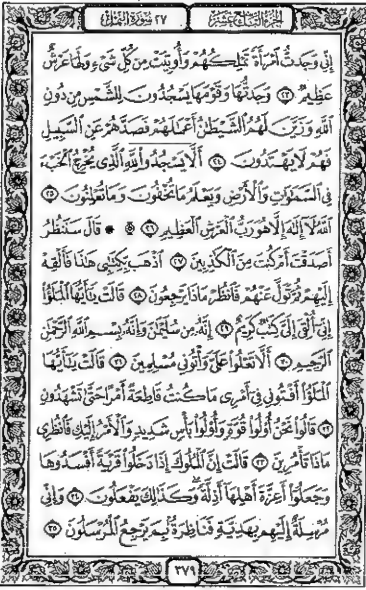 الجزء التاسع عشر ٢٧ سورة النمل
إِنِّي وَجَدتُّ ٱمْرَأَةً تَمْلِكُهُمْ وَأُوتِيَتْ مِن كُلِّ شَىْءٍ وَلَهَا عَرْشٌ
عَظِيمٌ ٢٣ وَجَدتُّهَا وَقَوْمَهَا يَسْجُدُونَ لِلشَّمْسِ مِن دُونِ
ٱللَّهِ وَزَيَّنَ لَهُمُ ٱلشَّيْطَٰنُ أَعْمَٰلَهُمْ فَصَدَّهُمْ عَنِ ٱلسَّبِيلِ
فَهُمْ لَا يَهْتَدُونَ ٢٤ أَلَّا يَسْجُدُوا۟ لِلَّهِ ٱلَّذِى يُخْرِجُ ٱلْخَبْءَ
فِى ٱلسَّمَٰوَٰتِ وَٱلْأَرْضِ وَيَعْلَمُ مَا تُخْفُونَ وَمَا تُعْلِنُونَ ٢٥
ٱللَّهُ لَآ إِلَٰهَ إِلَّا هُوَ رَبُّ ٱلْعَرْشِ ٱلْعَظِيمِ ۩ ٢٦ ۞ قَالَ سَنَنظُرُ
أَصَدَقْتَ أَمْ كُنتَ مِنَ ٱلْكَٰذِبِينَ ٢٧ ٱذْهَب بِّكِتَٰبِى هَٰذَا فَأَلْقِهْ
إِلَيْهِمْ ثُمَّ تَوَلَّ عَنْهُمْ فَٱنظُرْ مَاذَا يَرْجِعُونَ ٢٨ قَالَتْ يَٰٓأَيُّهَا ٱلْمَلَؤُا۟
إِنِّىٓ أُلْقِىَ إِلَىَّ كِتَٰبٌ كَرِيمٌ ٢٩ إِنَّهُۥ مِن سُلَيْمَٰنَ وَإِنَّهُۥ بِسْمِ ٱللَّهِ ٱلرَّحْمَٰنِ
ٱلرَّحِيمِ ٣٠ أَلَّا تَعْلُوا۟ عَلَىَّ وَأْتُونِى مُسْلِمِينَ ٣١ قَالَتْ يَٰٓأَيُّهَا
ٱلْمَلَؤُا۟ أَفْتُونِى فِىٓ أَمْرِى مَا كُنتُ قَاطِعَةً أَمْرًا حَتَّىٰ تَشْهَدُونِ
٣٢ قَالُوا۟ نَحْنُ أُو۟لُوا۟ قُوَّةٍ وَأُو۟لُوا۟ بَأْسٍ شَدِيدٍ وَٱلْأَمْرُ إِلَيْكِ فَٱنظُرِى
مَاذَا تَأْمُرِينَ ٣٣ قَالَتْ إِنَّ ٱلْمُلُوكَ إِذَا دَخَلُوا۟ قَرْيَةً أَفْسَدُوهَا
وَجَعَلُوٓا۟ أَعِزَّةَ أَهْلِهَآ أَذِلَّةً ۖ وَكَذَٰلِكَ يَفْعَلُونَ ٣٤ وَإِنِّى
مُرْسِلَةٌ إِلَيْهِم بِهَدِيَّةٍ فَنَاظِرَةٌۢ بِمَ يَرْجِعُ ٱلْمُرْسَلُونَ ٣٥
٣٧٩